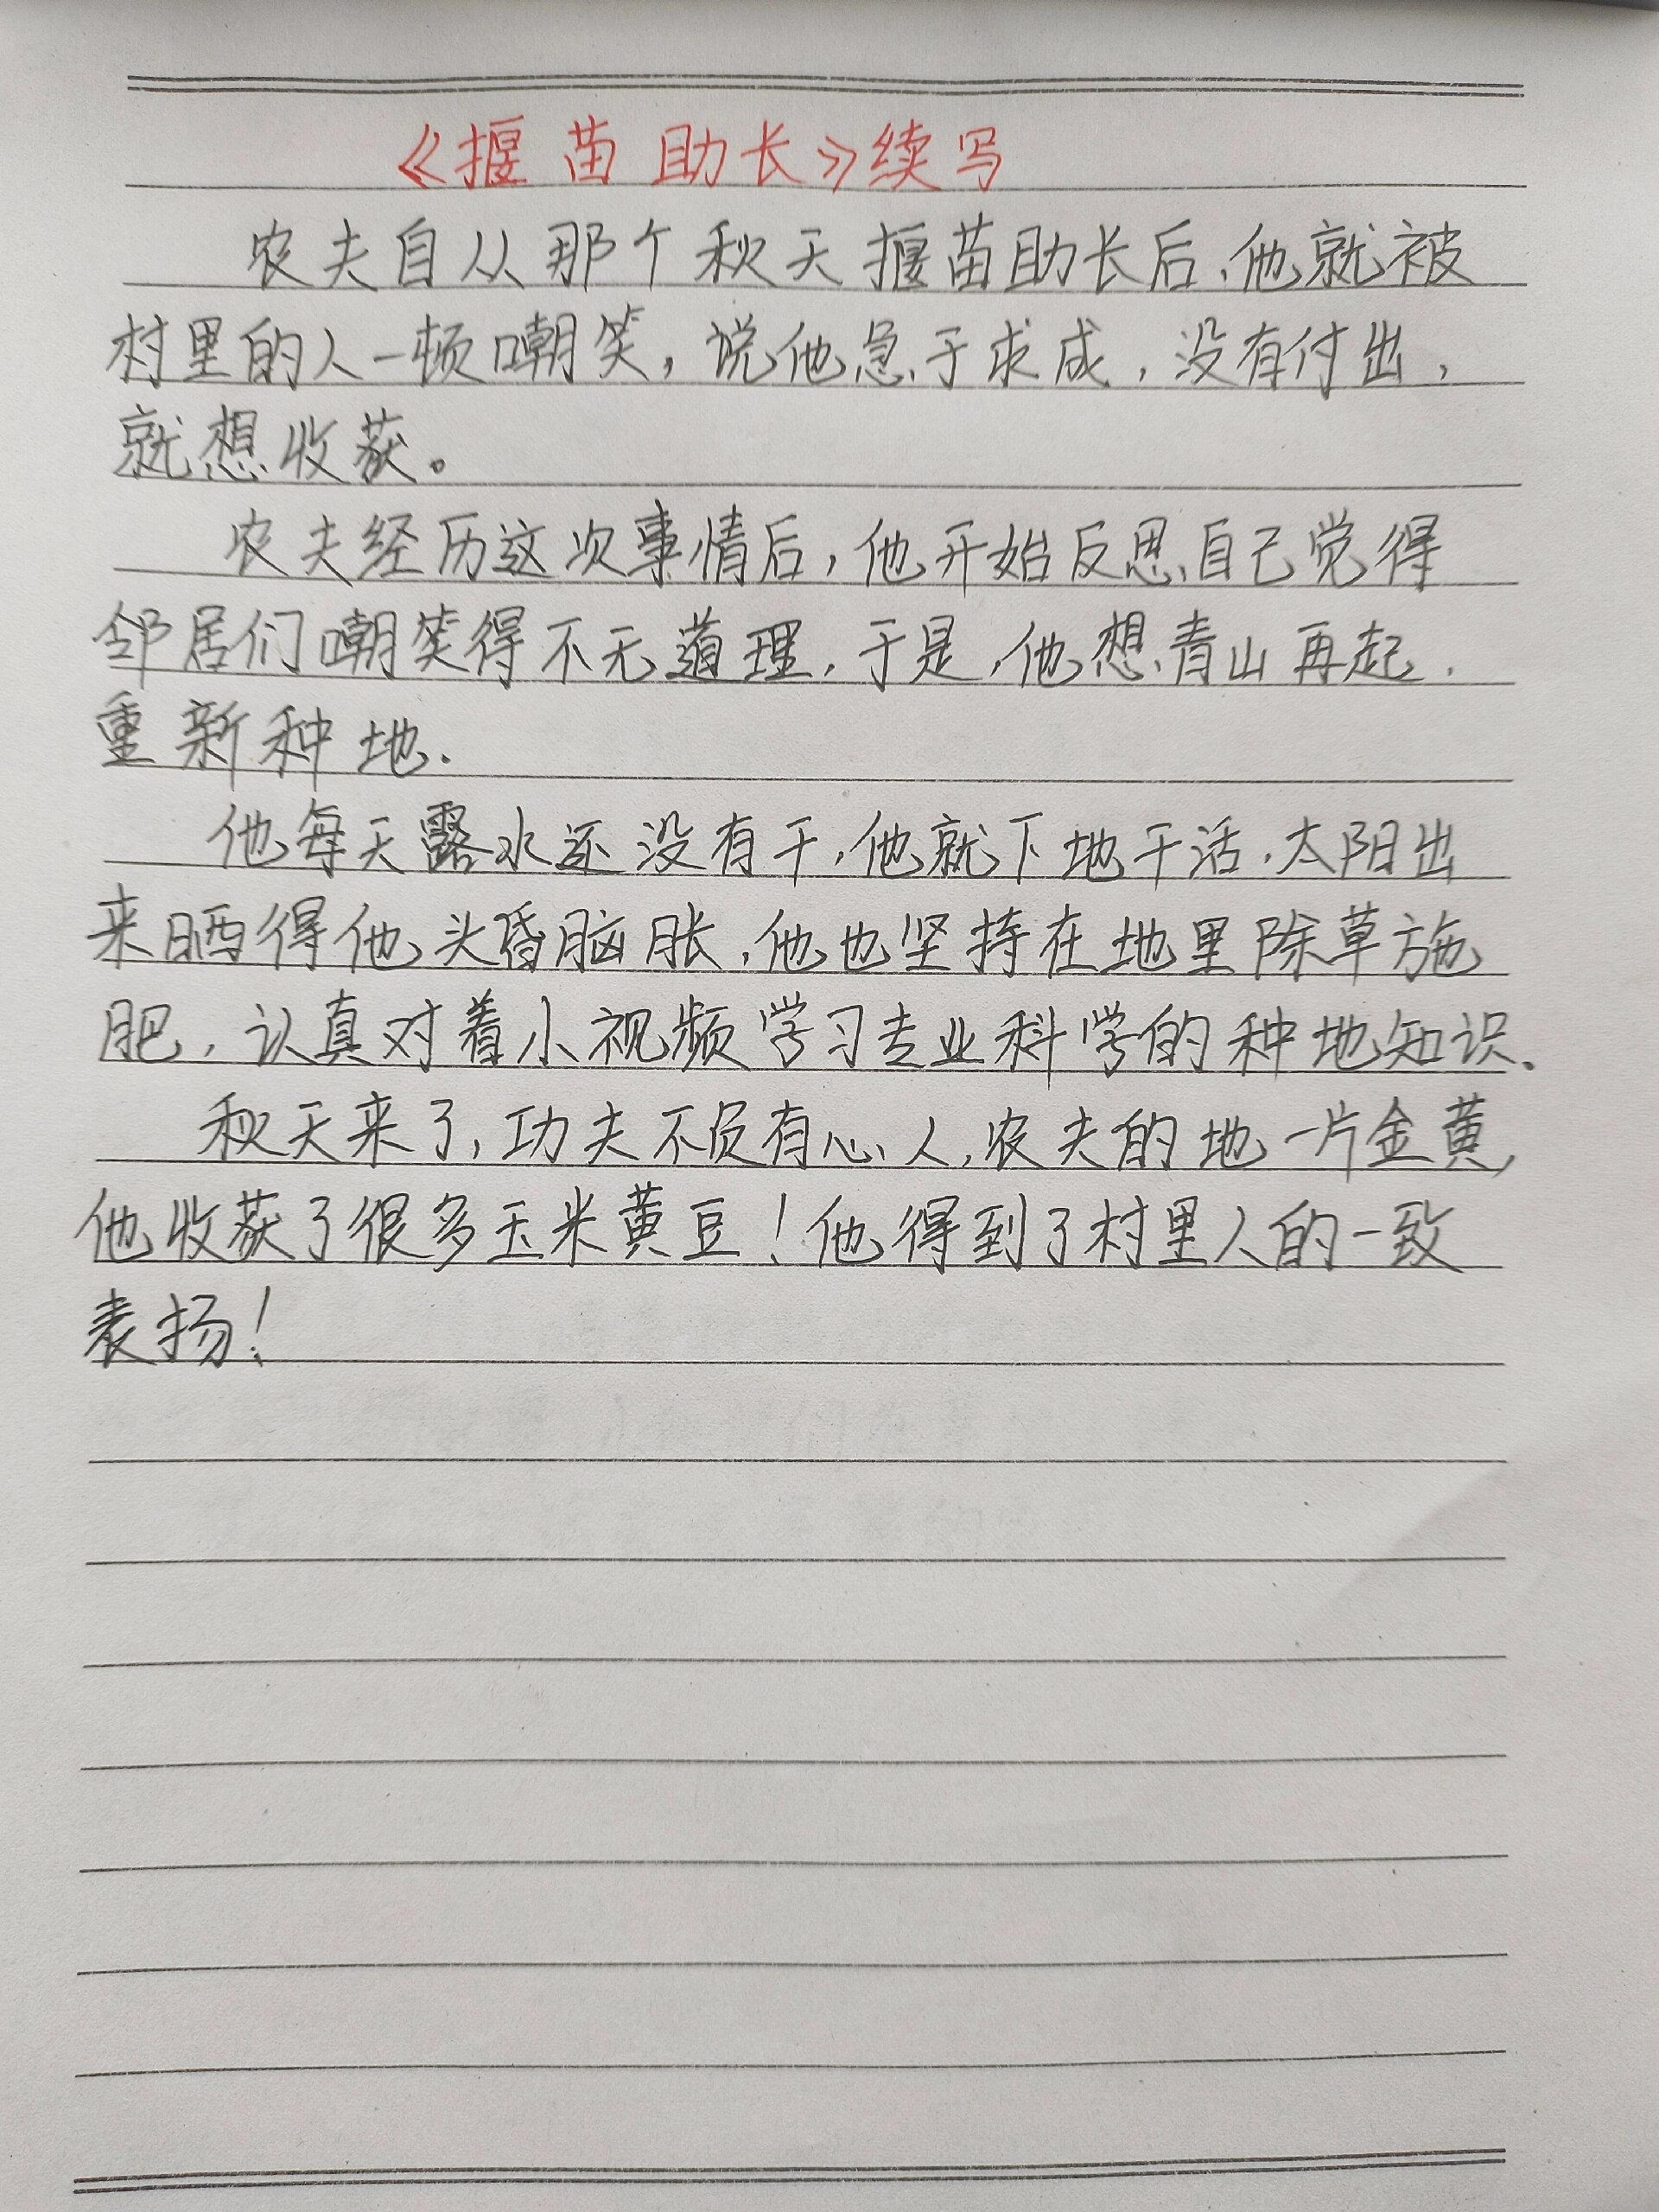 《揠苗助长》续写
农夫自从那个秋天揠苗助长后,他就被
村里的人一顿嘲笑,说他急于求成,没有付出,
就想收获。
农夫经历这次事情后,他开始反思,自己觉得
邻居们嘲笑得不无道理,于是,他想青山再起,
重新种地.
他每天露水还没有干,他就下地干活,太阳出
来晒得他头昏脑胀,他也坚持在地里除草施
肥,认真对着小视频学习专业科学的种地知识.
秋天来了,功夫不负有心人,农夫的地一片金黄,
他收获了很多玉米黄豆!他得到了村里人的一致
表扬!